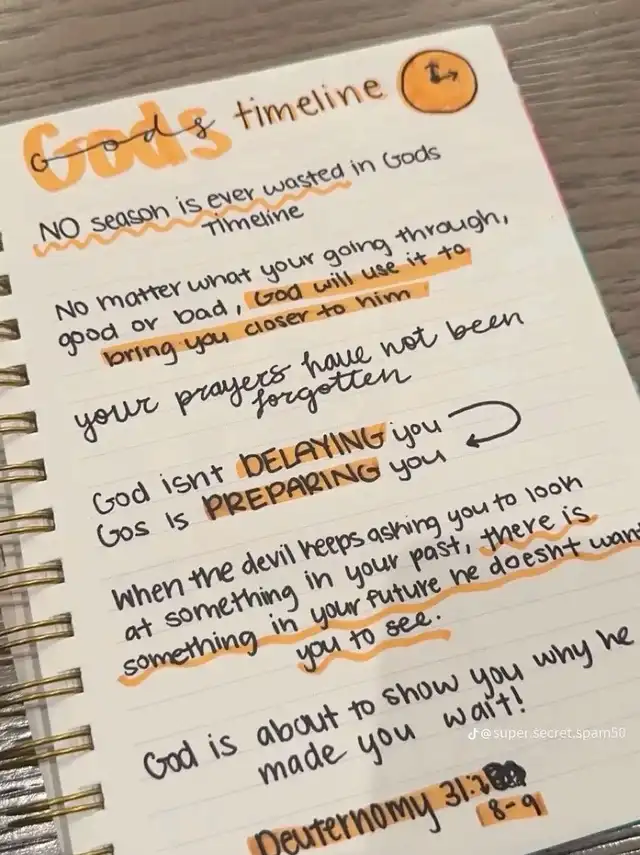 Gods timeline
NO season is ever wasted in Gods
Timeline
No matter what your going through,
good or bad, God will use it to
bring you closer to him
your prayers have not been
forgotten
God isnt DELAYING you
Gos Is PREPARING you
When the devil keeps asking you to look
at something in your past, there is
something in your future he doesnt want
you to see.
God is about to show you why he
made you wait!
@super.secret.spam50
Deuternomy 31:
8-9